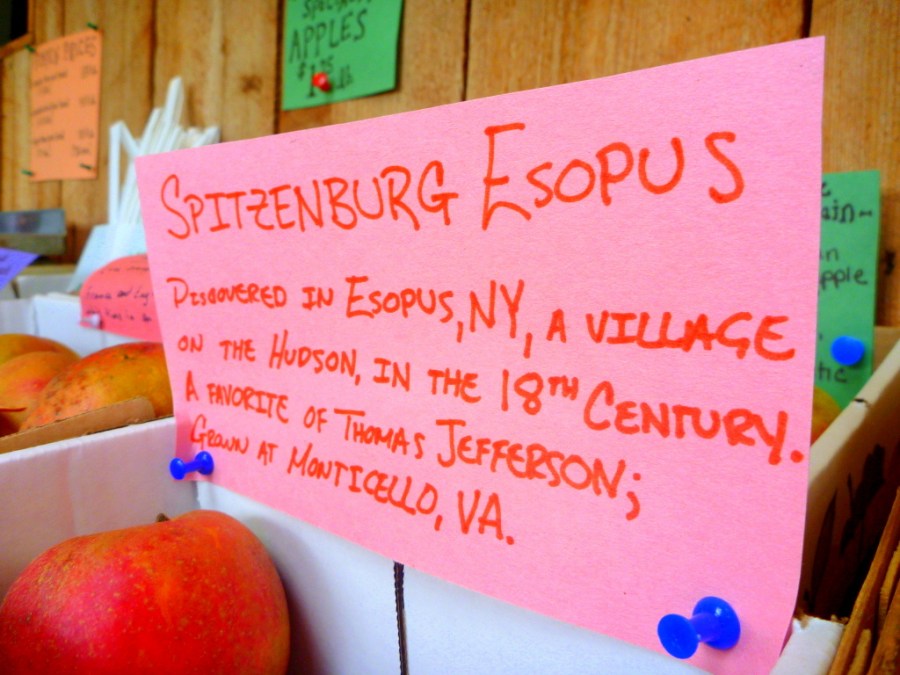 SPECIALTY
APPLES
SPITZENBURG ESOPUS
DISCOVERED IN ESOPUS, NY, A VILLAGE
ON THE HUDSON, IN THE 18TH CENTURY.
A FAVORITE OF THOMAS JEFFERSON;
GROWN AT MONTICELLO, VA.